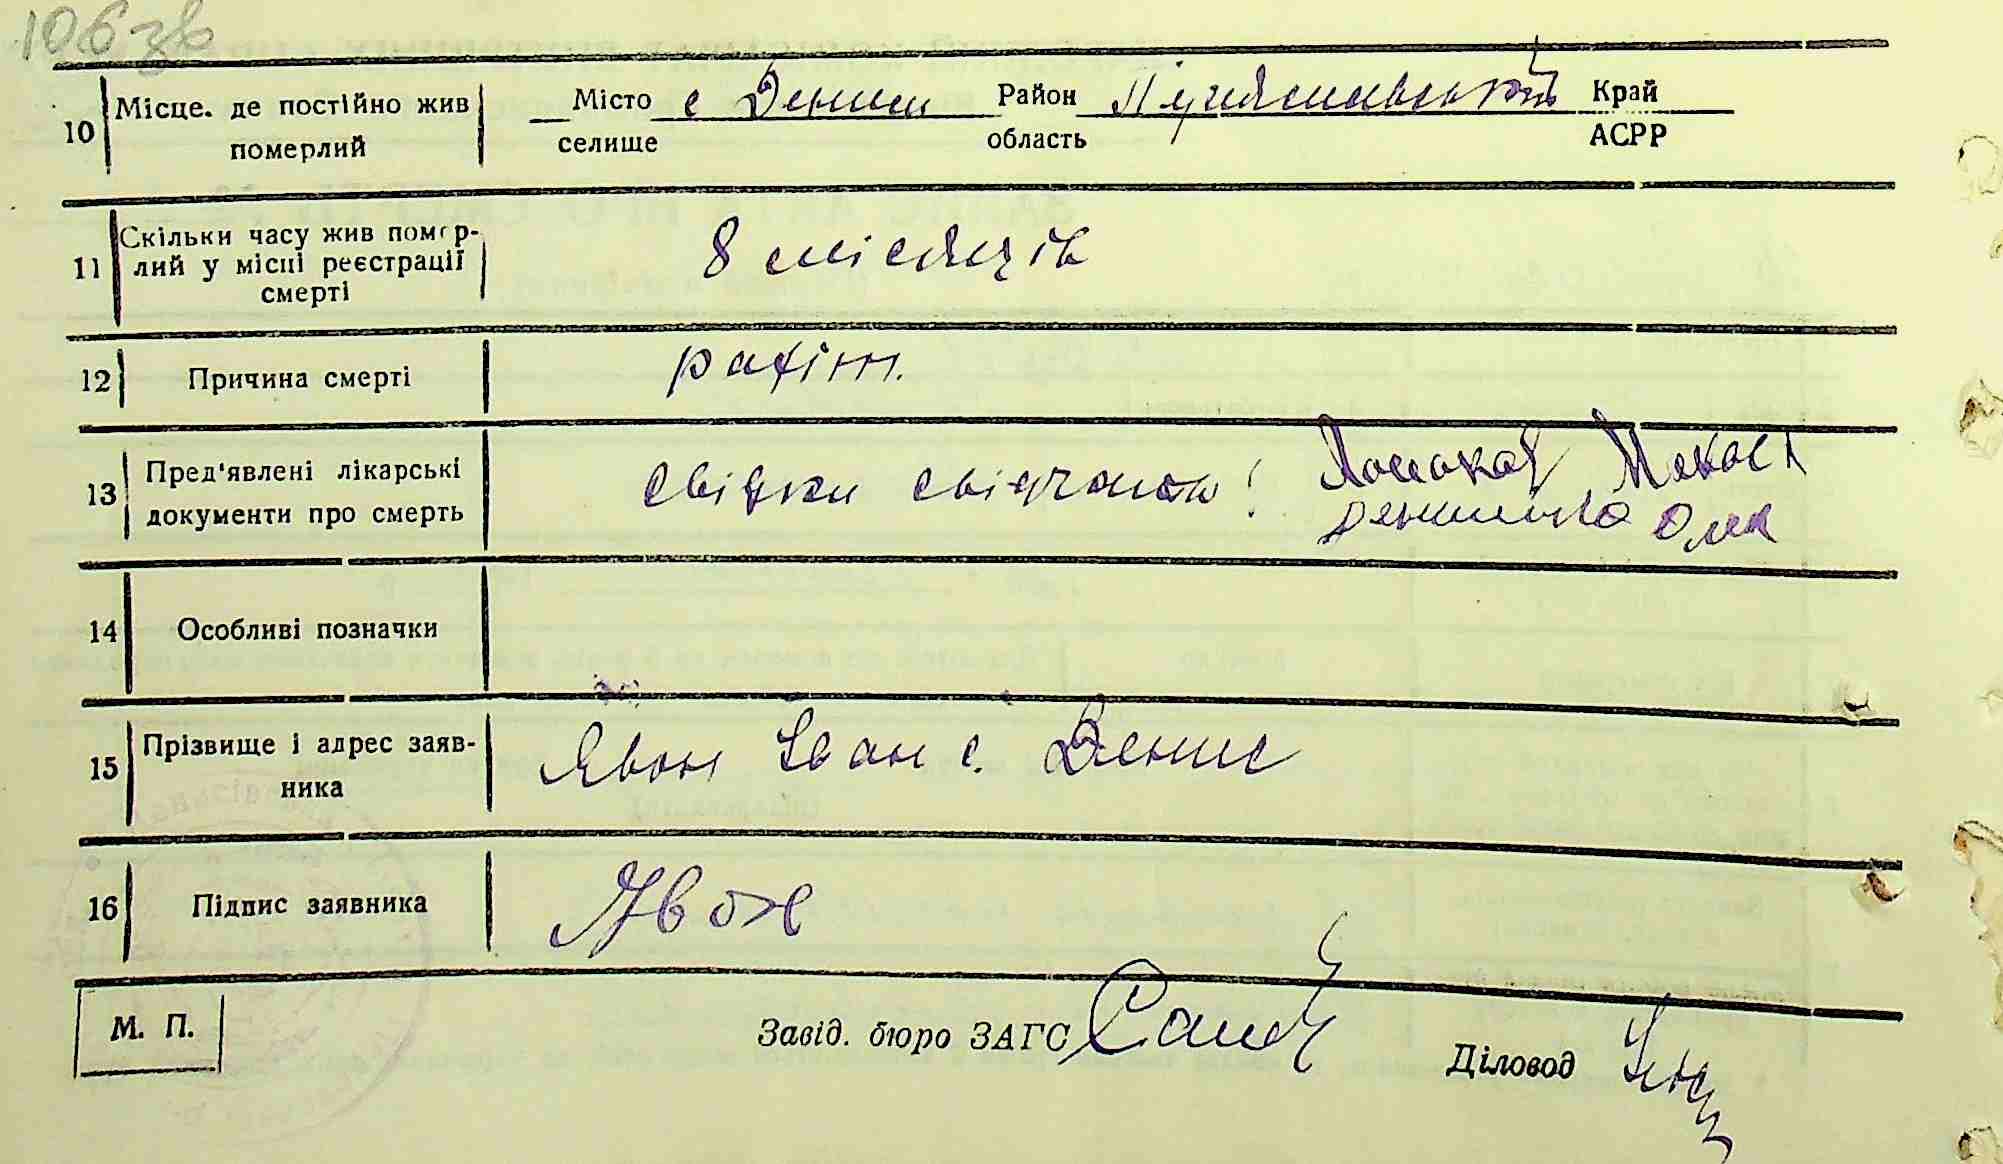 106 зв
10 Місце. де постійно жив померлий Місто селище с Дениси Район область Край АСРР
11 Скільки часу жив помер-
лий у місці реєстрації
смерті
8 місяців
12 Причина смерті рахіт.
13 Пред'явлені лікарські
документи про смерть
свідки свідчать:
14 Особливі позначки
15 Прізвище і адрес заяв-
ника
Явон Іван с. Денис
16 Підпис заявника Явон
М. П.
Завід. бюро ЗАГС
Діловод